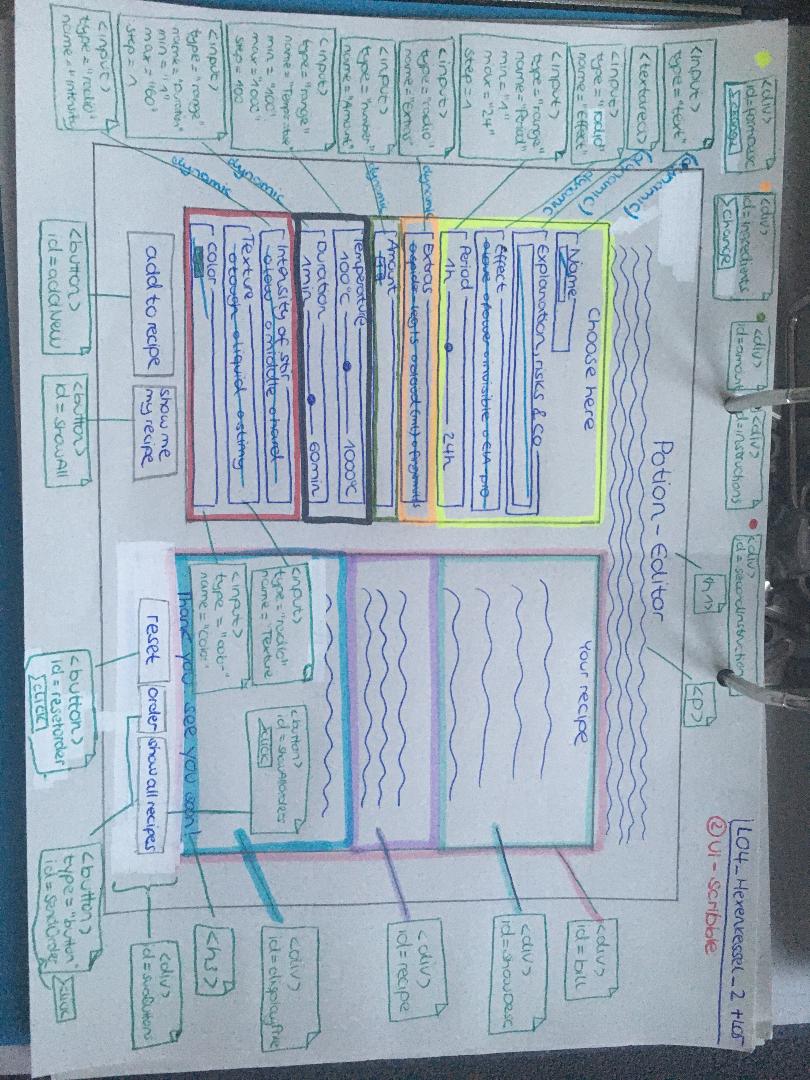 <div>
id=formDesc
change
<div>
id=ingredients
change
<div>
id=amount
<div>
id=instructions
<div>
id=secondInstructions
L04_Hexenkessel_2 + L05
② Ui-scribble
<h1>
<p>
<input>
type="text"
<textarea>
<input>
type="radio"
name="Effect"
<input>
type="range"
name="Period"
min="1"
max="24"
step=1
<input>
type="radio"
name="Extras"
<input>
type="number"
name="Amount"
<input>
type="range"
min="100"
max="1000"
step=100
<input>
type="range"
name="Duration"
min="1"
max="60"
step=1
<input>
type="radio"
name="Intensity
(dynamic)
(dynamic)
dynamic
dynamic
dynamic
dynamic
dynamic
Potion-Editor
Choose here
Name
Explanation, risks & co
Effect
o love o power o invisible
Period
1h 24h
Extras
Amount
Temperature
100°C 1000°C
Duration
1min 60min
Intensity of stir
o low o middle o hard
Texture
o tough o liquid o slimy
Color
add to recipe
show me
my recipe
<button>
id=addNew
<button>
id=showAll
Your recipe
<input>
type="radio"
name="Texture
<button>
id=showAllOrders
click
<input>
name="Color"
Thank you see you soon!
reset
order
show all recipes
<button>
id=resetorder
click
<button>
type="button"
id=sendOrder
click
<div>
id=bill
<div>
id=showDesc
<div>
id=recipe
<div>
<h3>
<div>